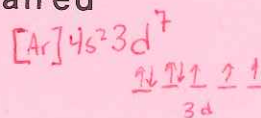 [Ar] 4s² 3d⁷
↑↓ ↑↓ ↑ ↑ ↑
3d